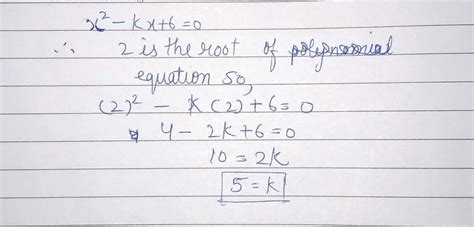 x² - kx + 6 = 0
∴ 2 is the root of polynomial
equation so,
(2)² - k(2) + 6 = 0
4 - 2k + 6 = 0
10 = 2k
5 = k